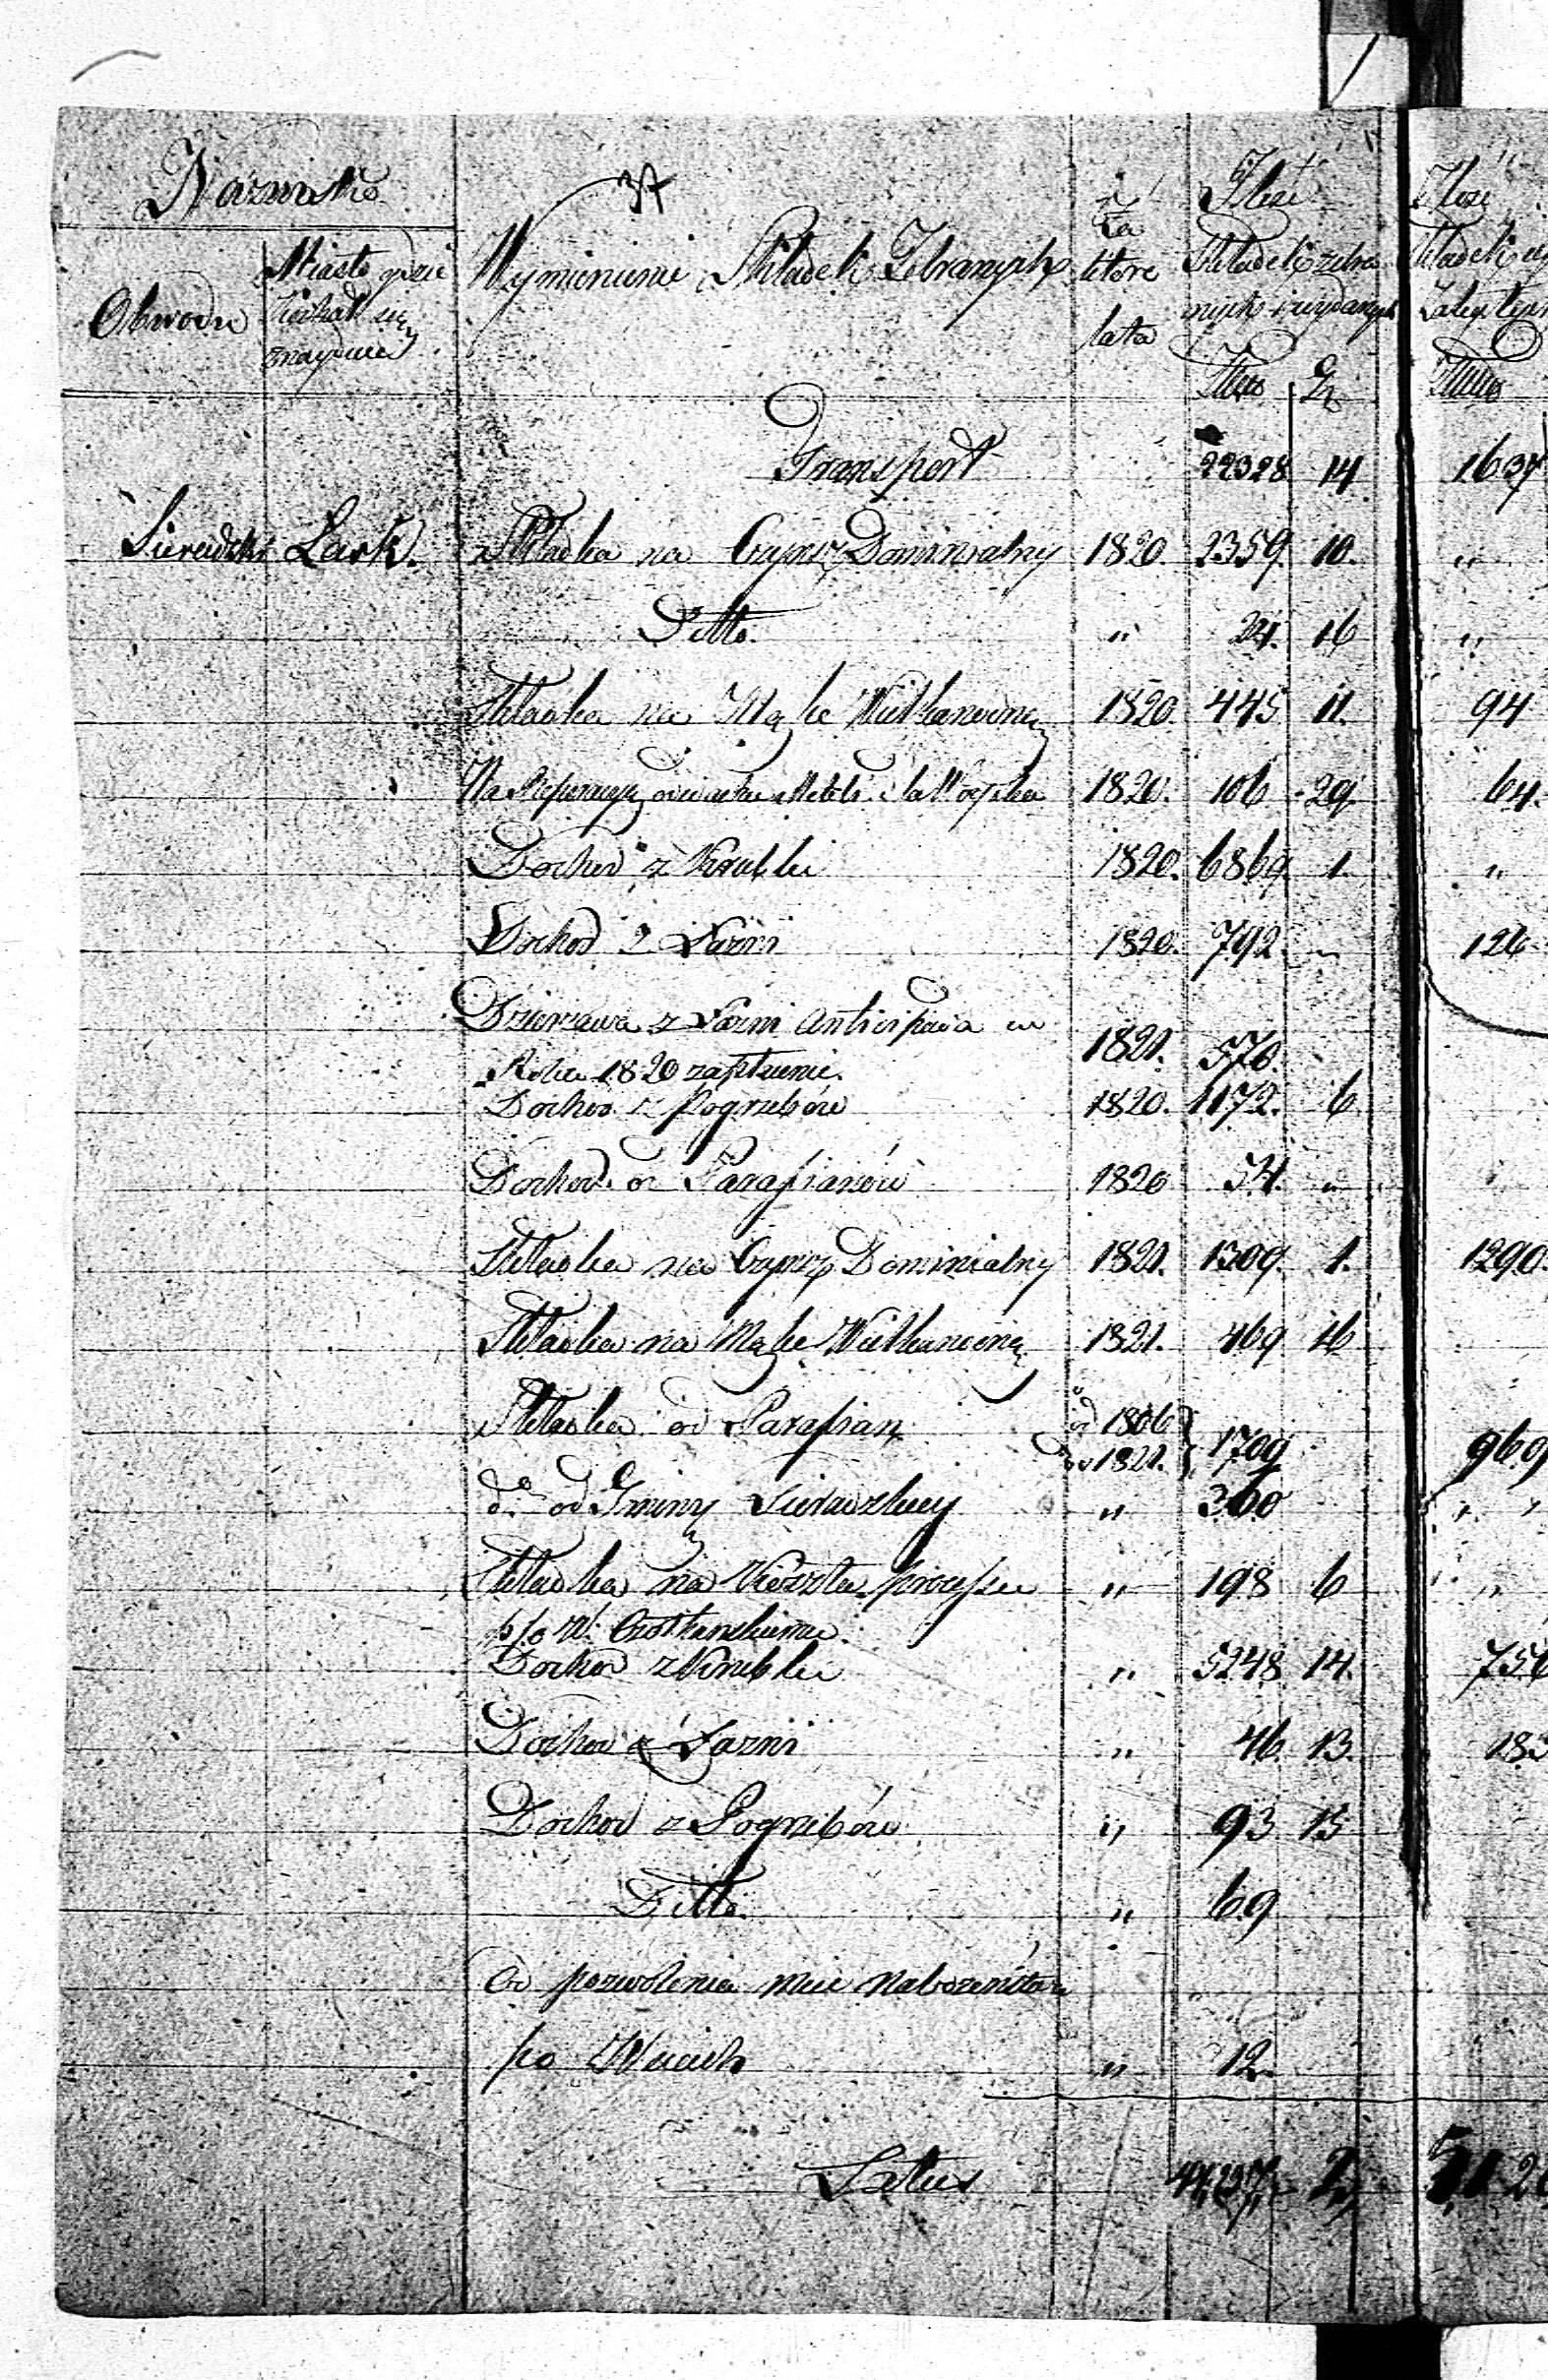 Nazwisko
Obwodu
Miasto gdzie
Kachał się
znayduie
Wymienienie Składek Zebranych
Za
które
lata
Ilość
Składek zebra
nych i wydanych
Złoto Gr
Ilość
Składek
Zaległych
Złoto
Transport 22328 14 1637
Sieradzki Łask. Składka na Czynsz Dominialny 1820. 2359. 10. "
Ditto. " 24. 16 "
Składka na Mąkę Wielkanocną 1820. 445 11. 94
Na Reperacyę 1820. 106 29. 64.
Dochod z Krobki 1820. 6869. 1. "
Dochod z Łazni 1820. 792. " 126
Dzierzawa z Łazni Anticipacia w
Roku 1820 zapłacenie. 1821. 570.
Dochod z Pogrzebów 1820. 1172. 6
Dochod od Parafianów 1820 54. "
Składka na Czynsz Dominialny 1821. 1309. 1. 1290.
Składka na Mąkę Wielkanocną 1821. 469 16
Składka od Parafian od 1806
do 1821. } 1709 969
do od Gminy Sieradzkiey " 360 " "
Składka na Koszta processu " 198 6 "
p/o W.
Dochod z Krobki " 5248 14. 756
Dochod z Łazni " 46. 13. 183
Dochod z Pogrzebów " 93 15
Ditto. " 69
Od pozwolenia mieć Nabozeństwa
po " 12.
Latus 2